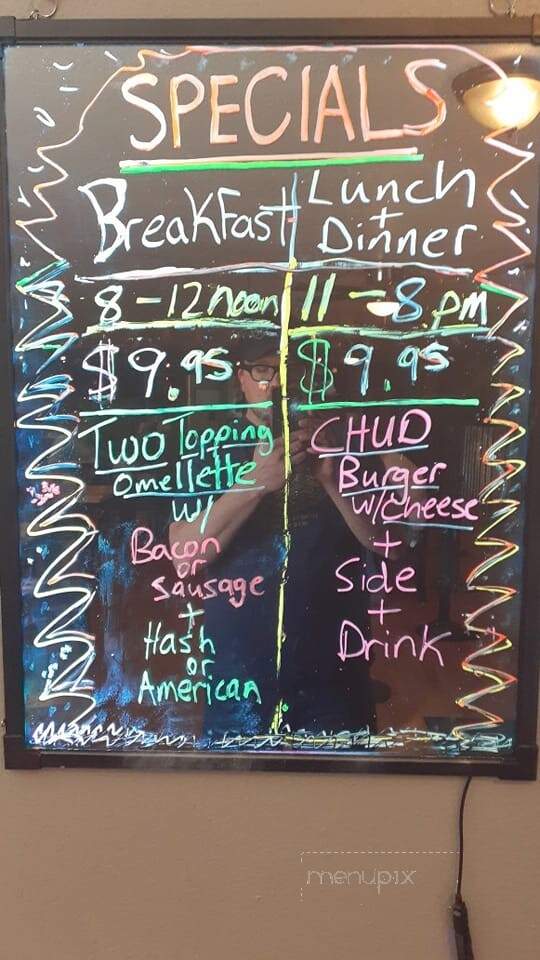 SPECIALS
Breakfast
8 - 12 noon
$9.95
Two Topping
Omellette
w/
Bacon
or
sausage
+
Hash
or
American
Lunch
+
Dinner
11 - 8 pm
$9.95
CHUD
Burger
w/cheese
+
Side
+
Drink
menupix